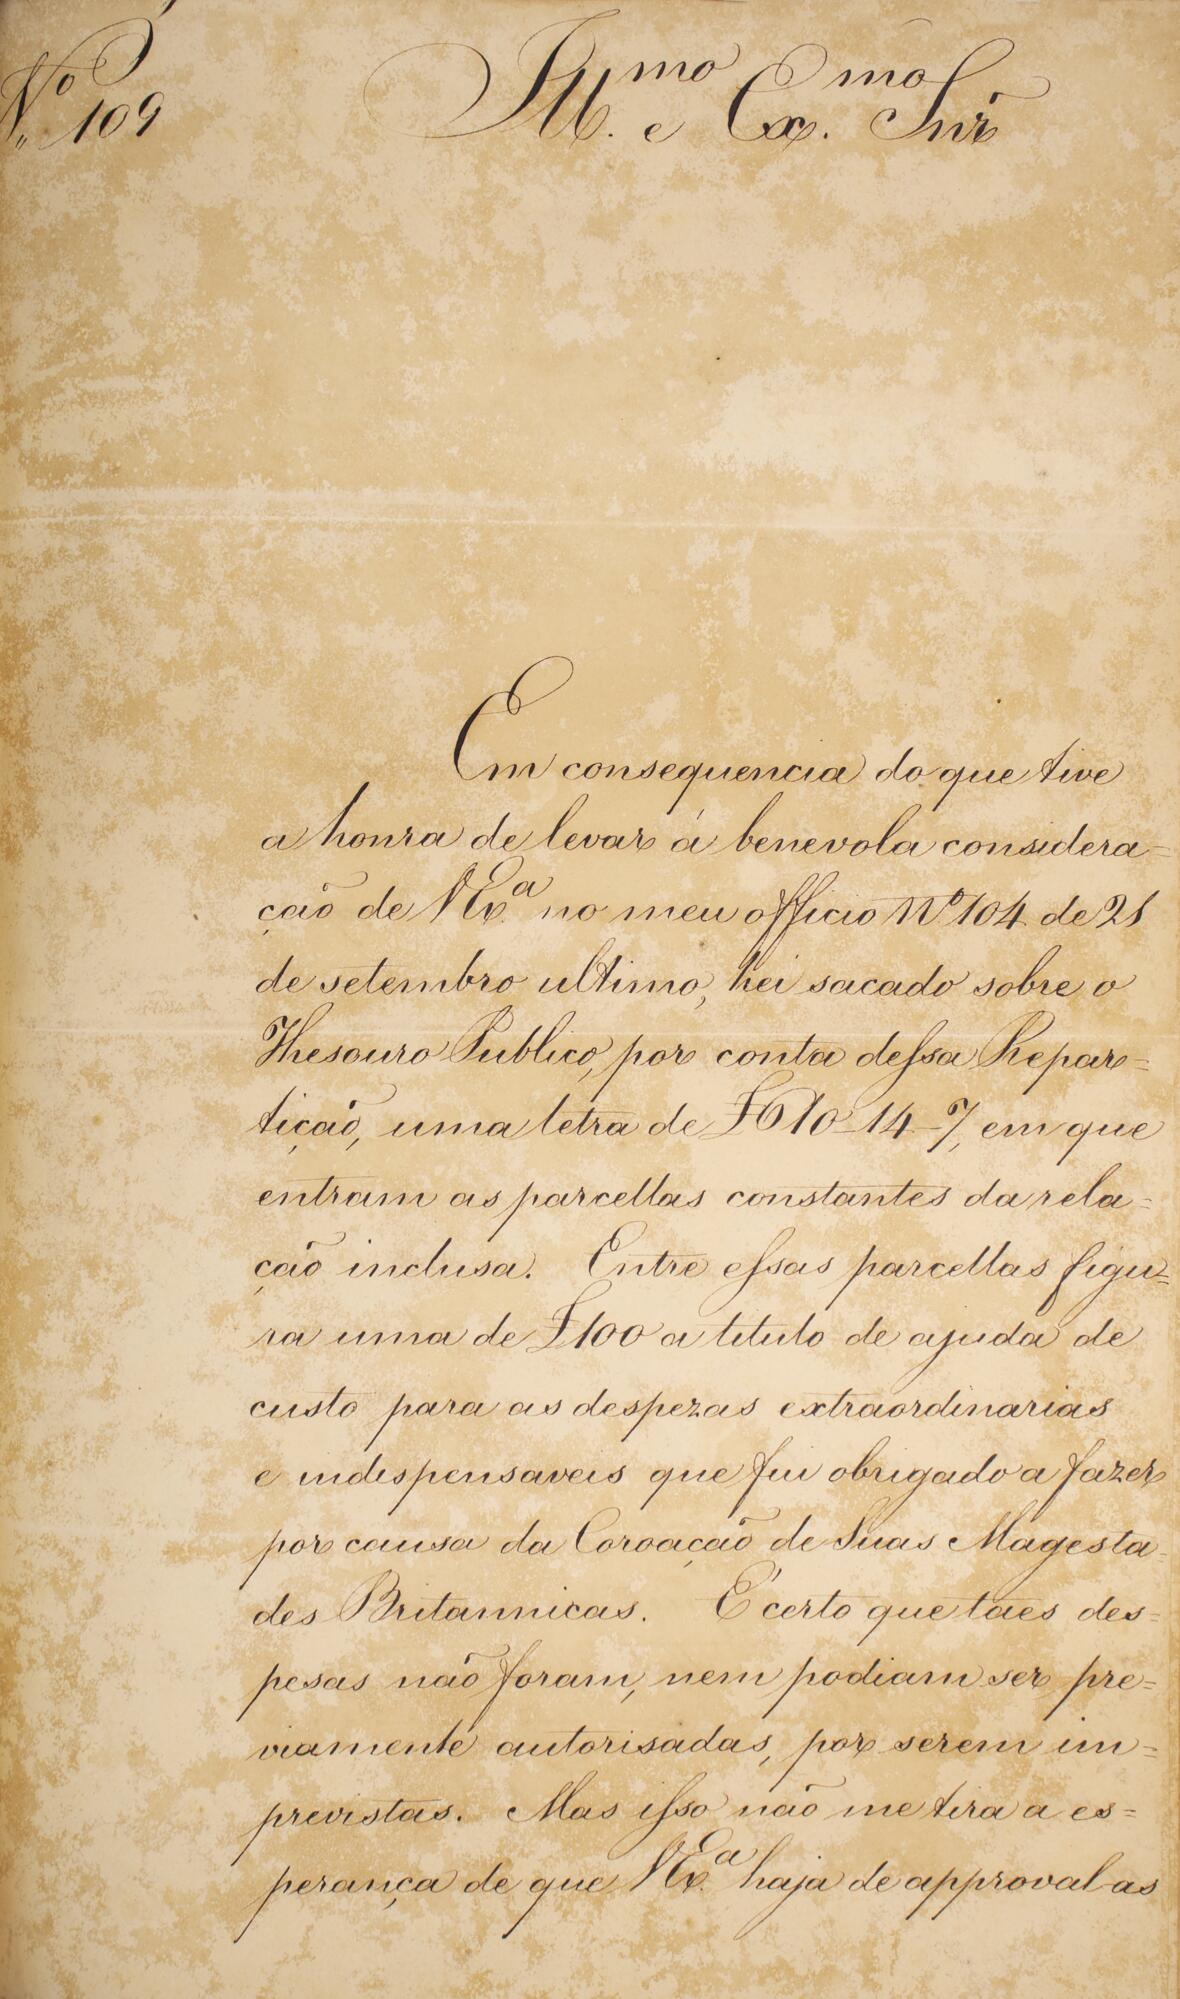 Nº 109
Illmo. e Exmo. Snr
Em consequencia do que tive
a honra de levar á benevola considera=
ção de V Exª. no meu officio Nº 104 de 21
de setembro ultimo, hei sacado sobre o
Thesouro Publico, por conta dessa Repar=
tição, uma letra de £610–14–7, em que
entram as parcellas constantes da rela=
ção inclusa. Entre essas parcellas figu=
ra uma de £100 a titulo de ajuda de
custo para as despezas extraordinarias
e indispensaveis que fui obrigado a fazer
por causa da Coroação de Suas Magesta=
des Britannicas. É certo que taes des=
pesas não foram, nem podiam ser pre=
viamente autorisadas, por serem im=
previstas. Mas isso não me tira a es=
perança de que V Exª. haja de approval-as